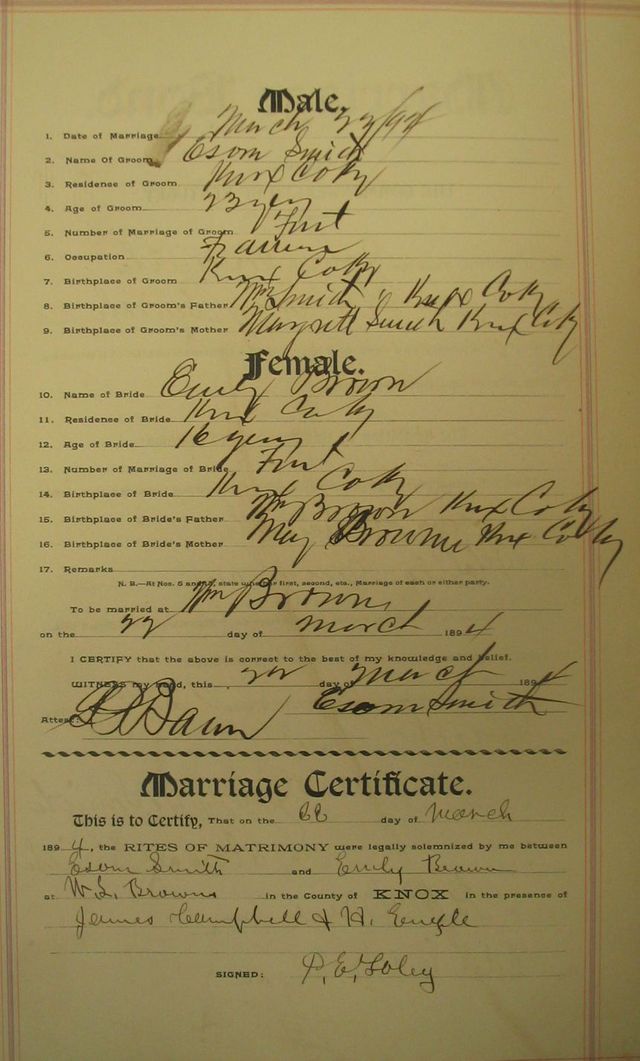 Male.
1. Date of Marriage March 22/94
2. Name Of Groom Esom Smith
3. Residence of Groom Knox Co Ky
4. Age of Groom 23 years
5. Number of Marriage of Groom First
6. Occupation Farmer
7. Birthplace of Groom Knox Co Ky
8. Birthplace of Groom's Father Wm Smith " Knox Co Ky
9. Birthplace of Groom's Mother Margrett Smith Knox Co Ky
Female.
10. Name of Bride Emily Brown
11. Residence of Bride Knx Co Ky
12. Age of Bride 16 years
13. Number of Marriage of Bride First
14. Birthplace of Bride Knx Co Ky
15. Birthplace of Bride's Father Wm Brown Knx Co Ky
16. Birthplace of Bride's Mother Brown Knx Co Ky
17. Remarks
N. B.—At Nos. 5 and 13, state whether first, second, etc., Marriage of each or either party.
To be married at Wm Browns
on the 22 day of March 1894
I CERTIFY that the above is correct to the best of my knowledge and belief.
WITNESS my hand, this 22 day of March 1894
Attest: Esom Smith
Marriage Certificate.
This is to Certify, That on the 22 day of March
1894, the RITES OF MATRIMONY were legally solemnized by me between
Esom Smith and Emily Brown
at W. L. Browns in the County of KNOX in the presence of
James Campbell & H. Engle
SIGNED: P. E. Foley